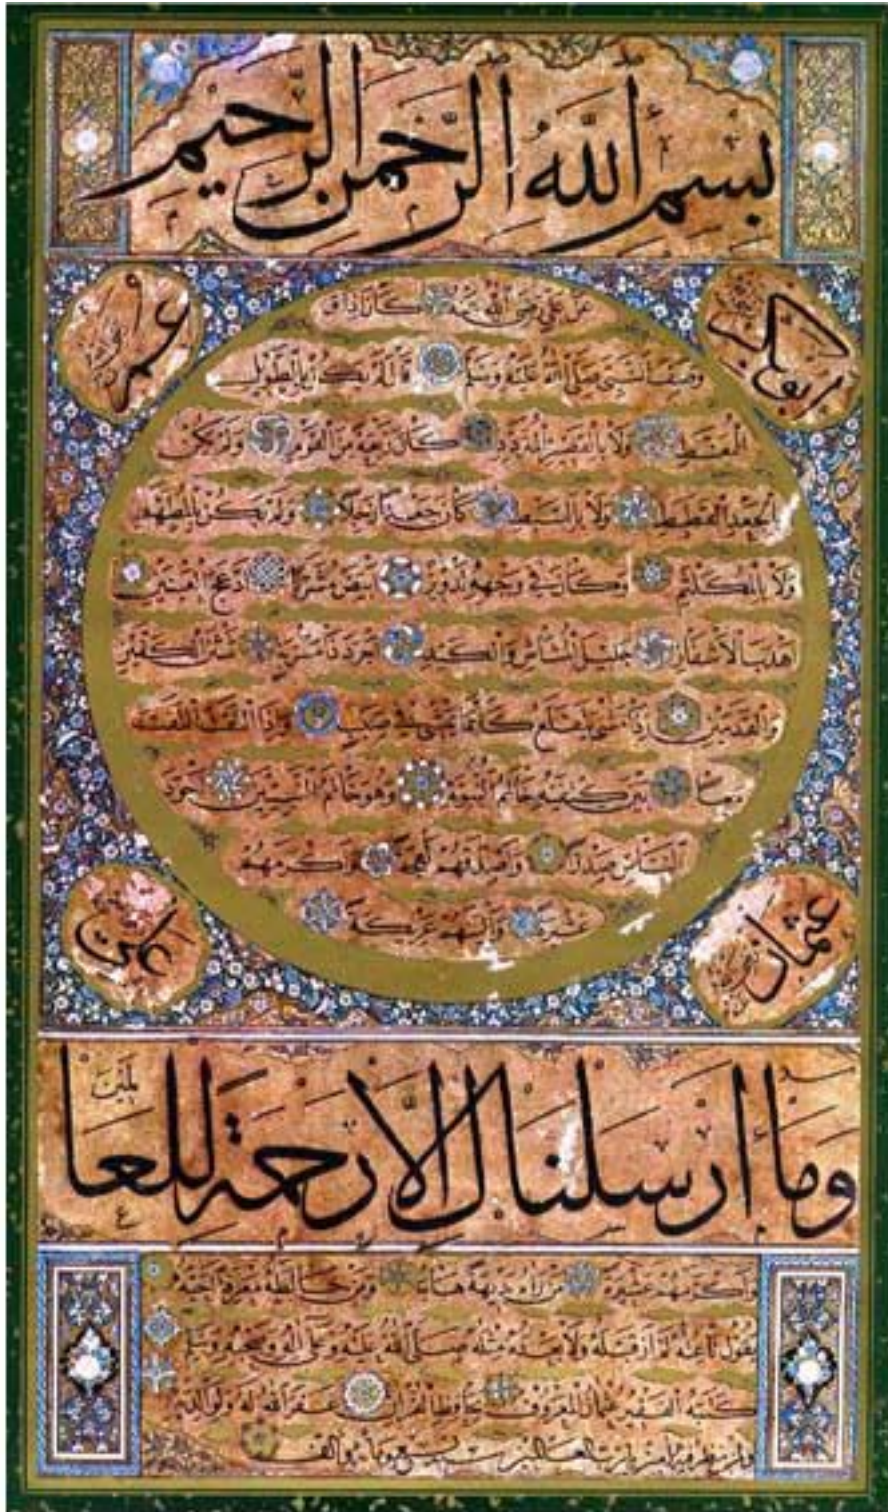 بسم الله الرحمن الرحيم
ابو بكر
عمر
عن علي رضي الله عنه كان اذا
وصف النبي صلى الله عليه وسلم قال لم يكن بالطويل
الممغط ولا بالقصير المتردد كان ربعة من القوم ولم يكن
بالجعد القطط ولا بالسبط كان جعدا رجلا ولم يكن بالمطهم
ولا بالمكلثم وكان في وجهه تدوير ابيض مشرب ادعج العينين
اهدب الاشفار جليل المشاش والكتد اجرد ذا مسربة شثن الكفين
والقدمين اذا مشى يتقلع كانما يمشي في صبب واذا التفت التفت
معا بين كتفيه خاتم النبوة وهو خاتم النبيين اجود
الناس صدرا واصدقهم لهجة واكرمهم
عشرة والينهم عريكة
عثمان
علي
وما أرسلناك الا رحمة للعالمين
واكرمهم عشيرة من راه بديهة هابه ومن خالطه معرفة احبه
يقول ناعته لم ار قبله ولا بعده مثله صلى الله عليه وعلى اله وصحبه وسلم
كتبه الفقير عثمان المعروف بحافظ القران غفر الله له ولوالديه
ولمن نظر فيه امين يا رب العالمين